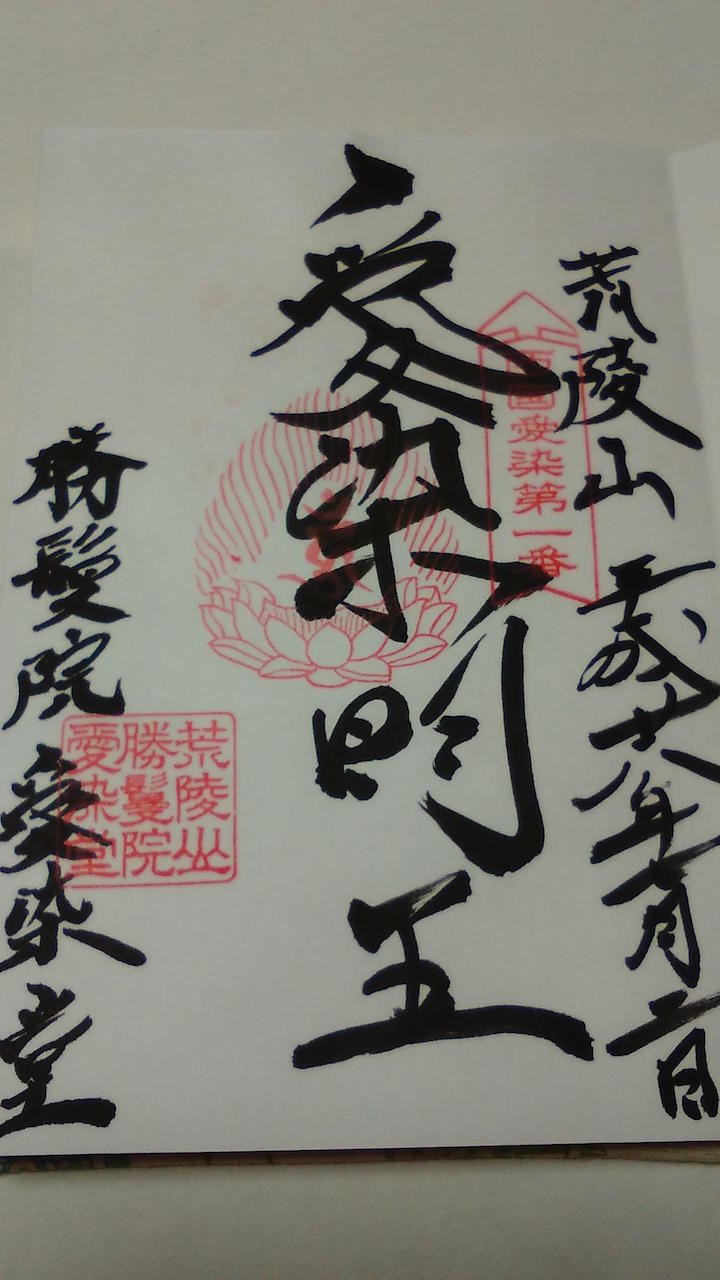 荒陵山 平成廿八年 月二日
西國愛染第一番
愛染明王
荒陵山
勝鬘院
愛染堂
勝鬘院 愛染堂